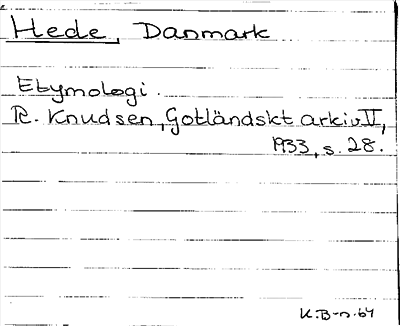 Hede, Danmark
Etymologi.
R. Knudsen, Gotländskt arkiv V,
1933, s. 28.
K.B-n.64